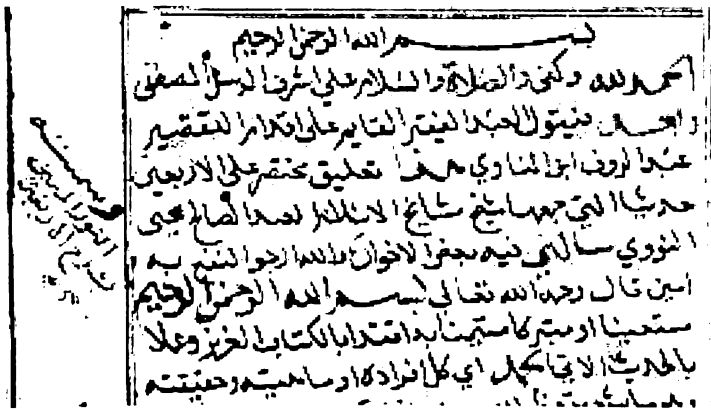 بسم الله الرحمن الرحيم
الحمد لله وكفى والصلاة والسلام على اشرف الرسل المصطفى
وبعد فيقول العبد الفقير القايم على اقدام التقصير
عبد الروف ابن المناوي هذا تعليق مختصر على الاربعين
حديثا التي جمعها شيخ مشايخ الاسلام العبد الصالح محيى
النووي سالني فيه بعض الاخوان والله ارجو النفع به
امين قال رحمه الله تعالى بسم الله الرحمن الرحيم
مستعينا او متبركا متيمنا به اقتدا بالكتاب العزيز وعملا
بالحديث الاتي كل اي كل افراده او ماهيته وحقيقته
النور المبين
شرح الاربعين